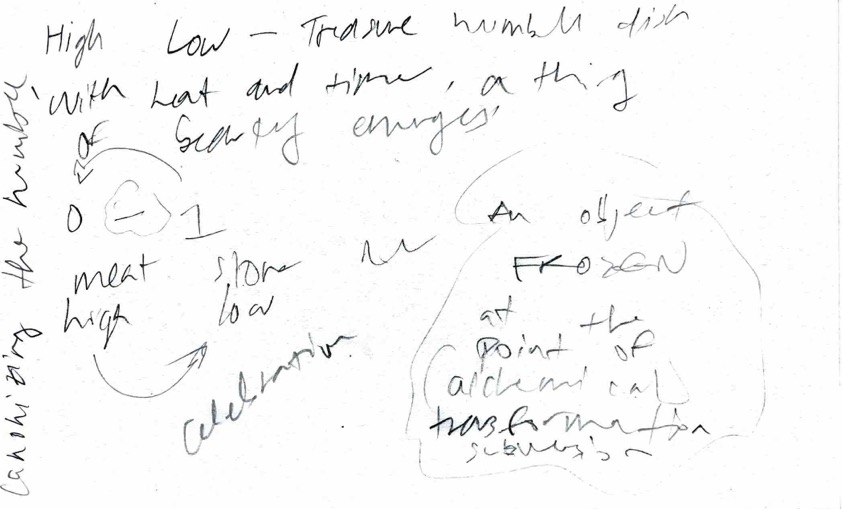 High Low — Treasure humble dish
with heat and time, a thing
of beauty emerges
0 — 1
meat stone
high low
celebration
An object
FROZEN
at the
point of
alchemical
transformation
subversion
the humble